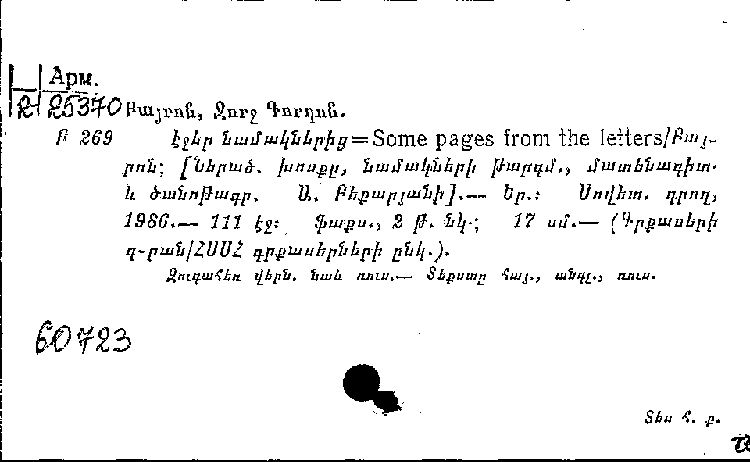 Арм.
2 25370 Բայրոն, Ջորջ Գորդոն.
Բ 269 Էջեր նամակներից=Some pages from the letters/Բայ-
րոն; [Ներած. խոսքը, նամակների թարգմ., մատենագիտ.
և ծանոթագր. Ա. Բեքարյանի].— Եր.: Սովետ. գրող,
1986.— 111 էջ: ֆաքս., 2 թ. նկ.; 17 սմ.— (Գրքասերի
գ-րան/ՀՍՍՀ գրքասերների ընկ.).
Զուգահեռ վերն. նաև ռուս.— Տեքստը հայ., անգլ., ռուս.
60723
Տես Հ. ք.